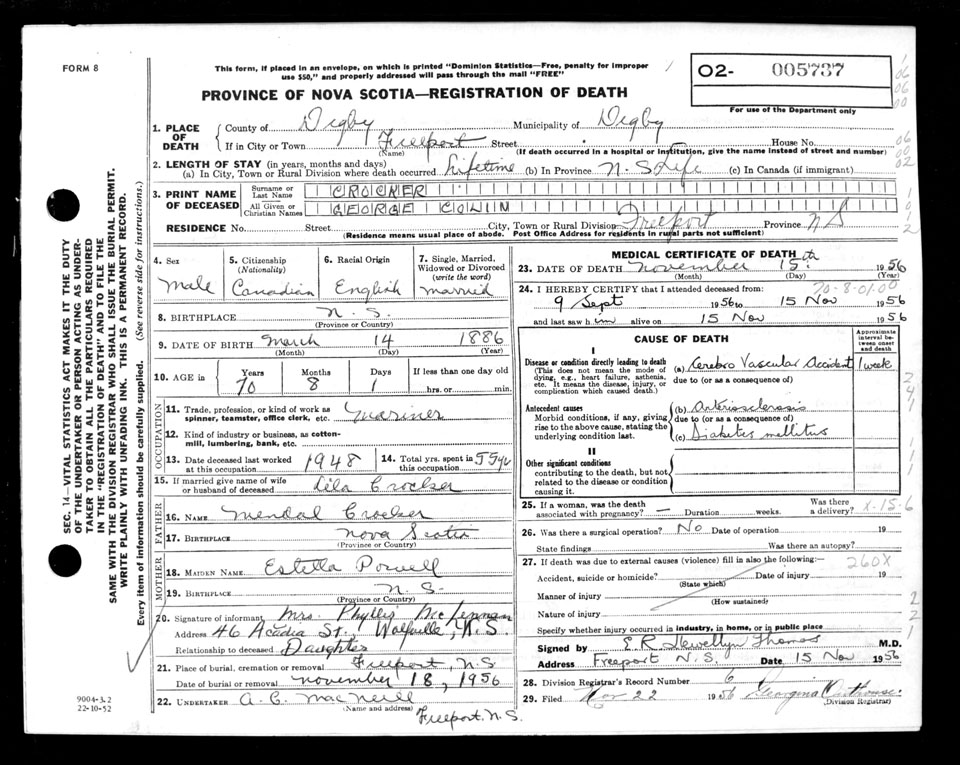 FORM 8
This form, if placed in an envelope, on which is printed "Dominion Statistics—Free, penalty for improper
use $50," and properly addressed will pass through the mail "FREE"
O2- 005737
For use of the Department only
PROVINCE OF NOVA SCOTIA—REGISTRATION OF DEATH
1. PLACE OF DEATH { County of Digby Municipality of Digby
If in City or Town Freeport Street House No.
(Name) (If death occurred in a hospital or institution, give the name instead of street and number)
2. LENGTH OF STAY (in years, months and days)
(a) In City, Town or Rural Division where death occurred Lifetime (b) In Province N. S. Life (c) In Canada (if immigrant)
3. PRINT NAME OF DECEASED { Surname or Last Name CROCKER
All Given or Christian Names GEORGE COLIN
RESIDENCE No. Street City, Town or Rural Division Freeport Province N S
(Residence means usual place of abode. Post Office Address for residents in rural parts not sufficient)
4. Sex
Male
5. Citizenship
(Nationality)
Canadian
6. Racial Origin
English
7. Single, Married, Widowed or Divorced
(write the word)
married
8. BIRTHPLACE N. S.
(Province or Country)
9. DATE OF BIRTH March 14 1886
(Month) (Day) (Year)
10. AGE in Years Months Days If less than one day old
70 8 1 hrs. or min.
OCCUPATION
11. Trade, profession, or kind of work as
spinner, teamster, office clerk, etc. Mariner
12. Kind of industry or business, as cotton-
mill, lumbering, bank, etc.
13. Date deceased last worked
at this occupation 1948
14. Total yrs. spent in
this occupation 55 yr
15. If married give name of wife
or husband of deceased Lila Crocker
FATHER
16. NAME Mendal Crocker
17. BIRTHPLACE Nova Scotia
(Province or Country)
MOTHER
18. MAIDEN NAME Estella Powell
19. BIRTHPLACE N. S.
(Province or Country)
20. Signature of informant Mrs. Phyllis McLennan
Address 46 Acadia St., Wolfville, N.S.
Relationship to deceased Daughter
21. Place of burial, cremation or removal Freeport, N.S
Date of burial or removal November 18, 1956
22. UNDERTAKER A. C. MacNeill
(Name and address)
Freeport. N. S.
MEDICAL CERTIFICATE OF DEATH
23. DATE OF DEATH November 15th 1956
(Month) (Day)
24. I HEREBY CERTIFY that I attended deceased from: 70-8-01.00
9 Sept 1956 to 15 Nov 1956
and last saw him alive on 15 Nov 1956
CAUSE OF DEATH
Approximate interval between onset and death
I
Disease or condition directly leading to death
(This does not mean the mode of
dying, e.g., heart failure, asthenia,
etc. It means the disease, injury, or
complication which caused death.)
(a) Cerebro Vascular Accident 1 week
due to (or as a consequence of)
Antecedent causes
Morbid conditions, if any, giving
rise to the above cause, stating the
underlying condition last.
(b) Arteriosclerosis
due to (or as a consequence of)
(c) Diabetes mellitus
II
Other significant conditions
contributing to the death, but not
related to the disease or condition
causing it.
25. If a woman, was the death
associated with pregnancy? — Duration weeks. Was there a delivery? X-15-6
26. Was there a surgical operation? No Date of operation 19
State findings Was there an autopsy?
27. If death was due to external causes (violence) fill in also the following: 260X
Accident, suicide or homicide? Date of injury 19
(State which)
Manner of injury
(How sustained)
Nature of injury
Specify whether injury occurred in industry, in home, or in public place
Signed by E. R. Llewellyn Thomas M.D.
Address Freeport N. S. Date 15 Nov 1956
28. Division Registrar's Record Number 6
29. Filed Nov 22 1956 Georgina Outhouse
(Division Registrar)
SEC. 14—VITAL STATISTICS ACT MAKES IT THE DUTY
OF THE UNDERTAKER OR PERSON ACTING AS UNDER-
TAKER TO OBTAIN ALL THE PARTICULARS REQUIRED
IN THE "REGISTRATION OF DEATH" AND TO FILE THE
SAME WITH THE DIVISION REGISTRAR WHO SHALL ISSUE THE BURIAL PERMIT.
WRITE PLAINLY WITH UNFADING INK. THIS IS A PERMANENT RECORD.
Every item of information should be carefully supplied. (See reverse side for instructions.)
9004-3.2
22-10-52